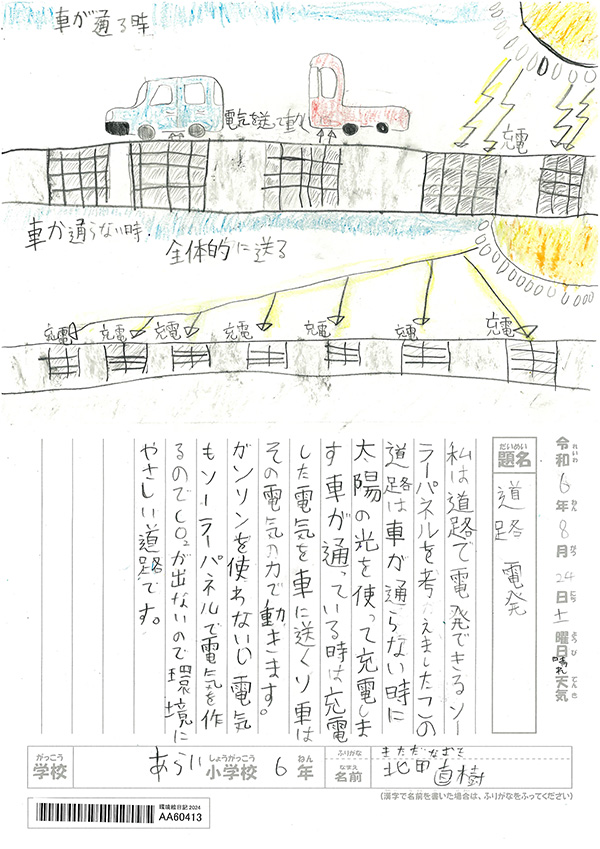 車が通る時
電気を送って動く
充電
車が通らない時
全体的に送る
充電
充電
充電
充電
充電
充電
充電
令和6年8月24日土曜日晴れ天気
れいわ ねん がつ にち ようび てんき
だいめい
題名
道路 発電
私は道路で電発できるソー
ラーパネルを考たえましたこの
道路は車が通らない時に
太陽の光を使って充電しま
す車が通っている時は充電
した電気を車に送くり車は
その電気の力で動きます。
ガソリンを使わないし電気
もソーラーパネルで電気を作
るのでCO2が出ないので環境に
やさしい道路です。
がっこう
学校
あらい
しょうがっこう
小学校
6
ねん
年
ふりがな
きただ なおき
なまえ
名前
北田 直樹
(漢字で名前を書いた場合は、ふりがなをふってください)
環境絵日記 2024
AA60413